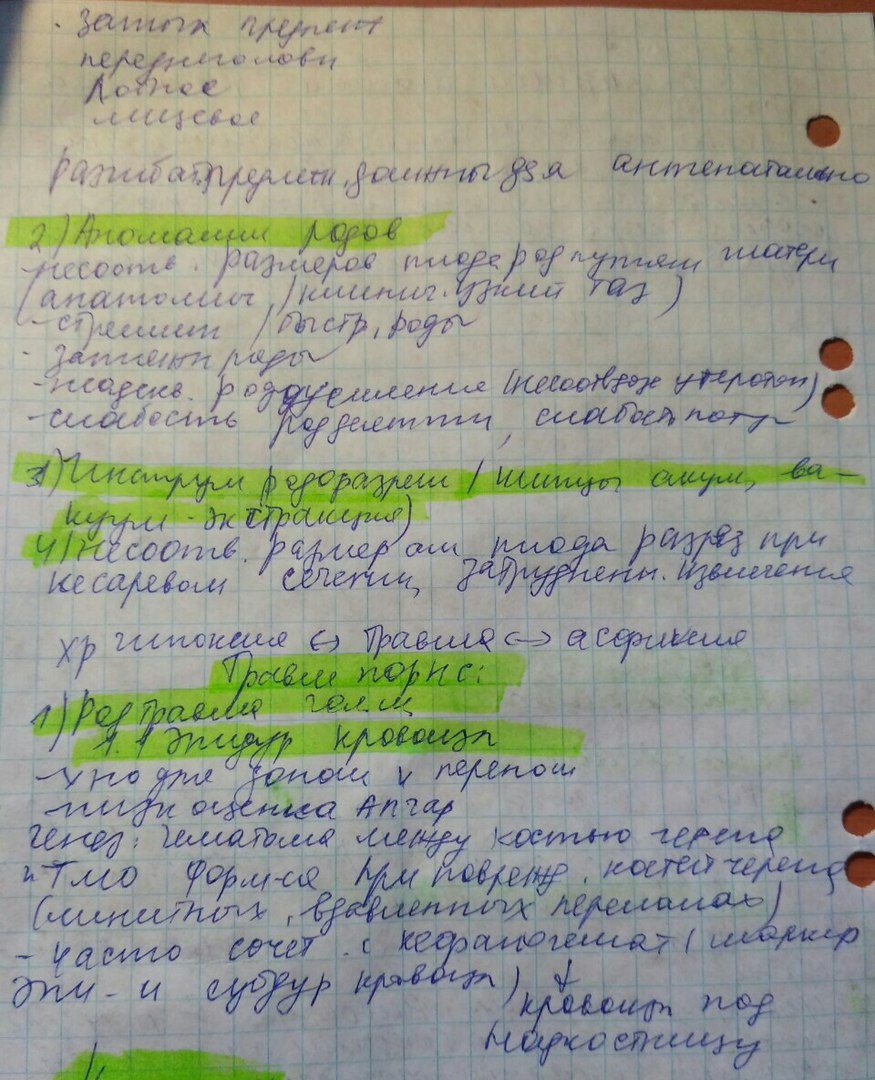 - затылк предлеж
переднеголовн
лобное
лицевое
разгибат. предлежн. должны дз-я антенатально
2) Аномалии родов
- несоотв. размеров плода род путям матери
(анатомич / клинич. узкий таз)
- стремит / быстр. роды
- затяжн роды
- родоусиление (несоотв дозе утеротон)
- слабость род деят-ти, слабость потуг
3) Инструм родоразреш / щипцы акуш, ва-
куум-экстракция)
4) Несоотв. размерам плода разрез при
кесаревом сечении, затруднены. извлечения
хр гипоксия ↔ травма ↔ асфиксия
Травм пор НС:
1) Род травма гол.м
1.1 Эпидур кровоизл
- у ... донош и перенош
- низк оценка Апгар
генез: гематома между костью черепа
и ТМО форм-ся при поврежд. костей черепа
(линейных, вдавленных переломах)
- часто сочет. с кефалогемат (маркер
эпи- и субдур кровоизл) ↓
кровоизл под
надкостницу